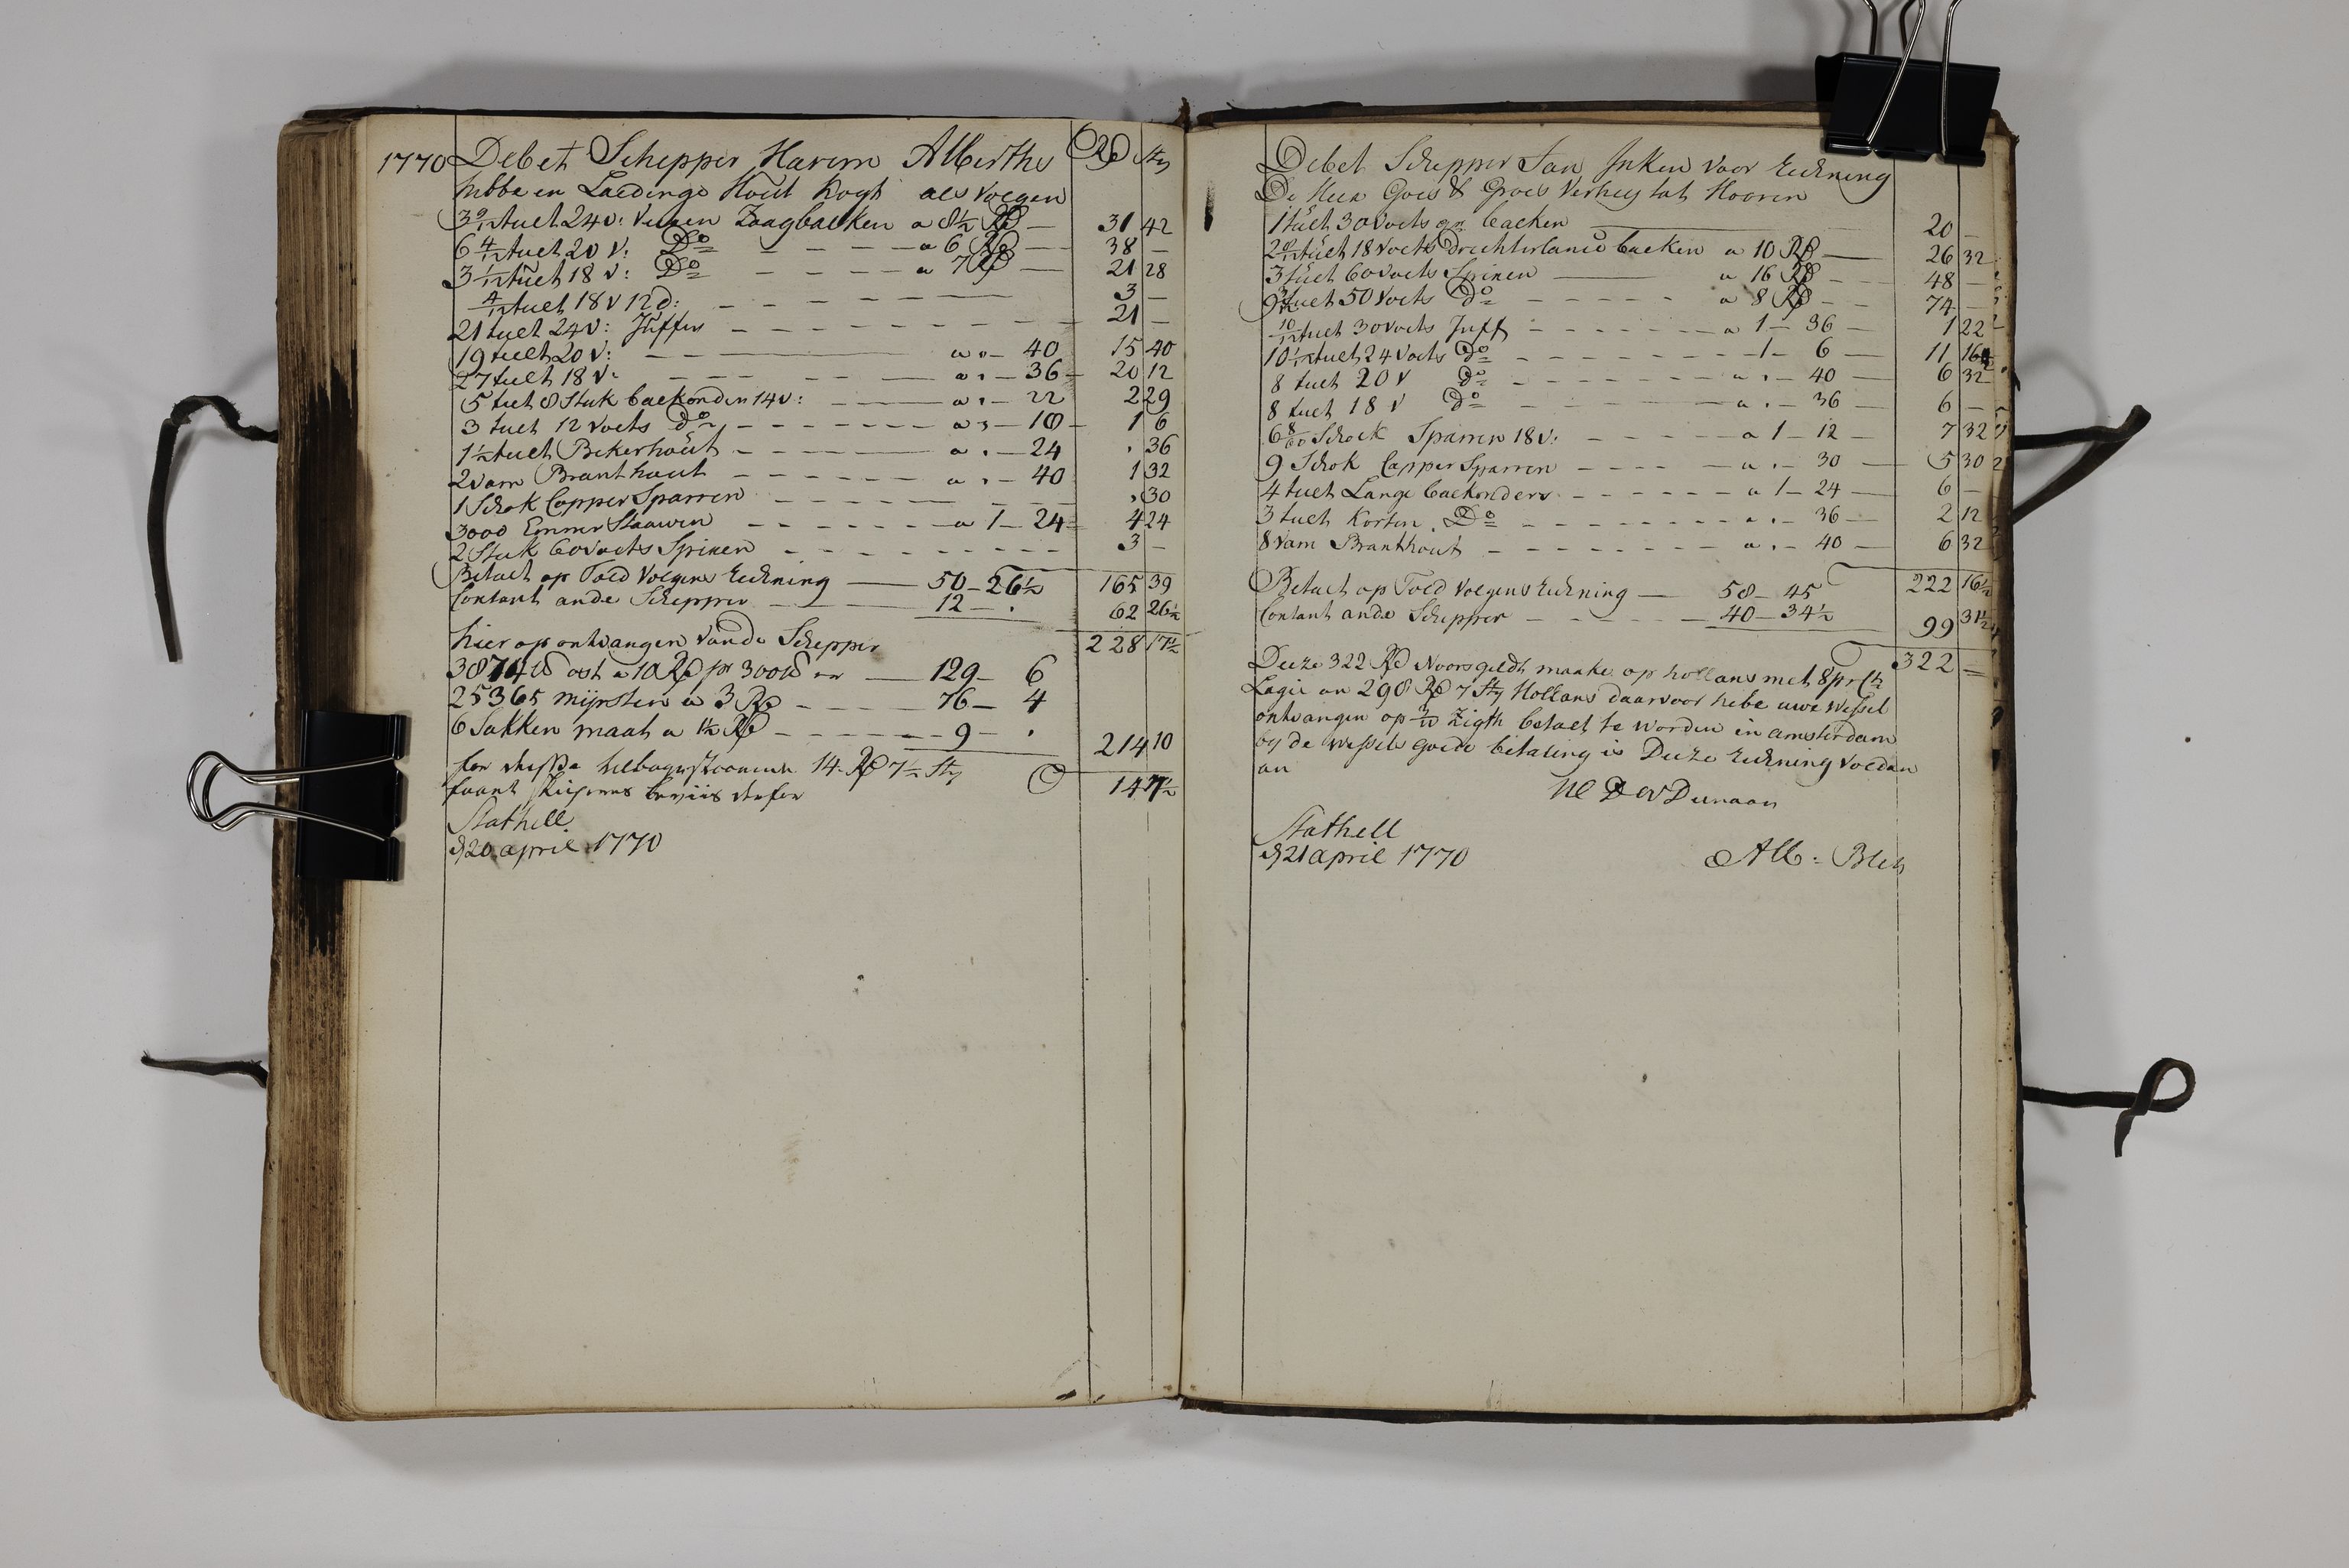 1770 Debet Schepper Harem Alberths Rd Sty
hebbe en Laedinge Hout Kogt als Volgen
3 9/12 tuelt 24 v: Vueren Zaagbaelken a 8½ Rd — 31 42
6 4/12 tuelt 20 v: Do — a 6 Rd — 38 —
3 1/12 tuelt 18 v: Do — a 7 Rd — 21 28
4/12 tuelt 18 v 12 d: — 3 —
21 tuelt 24 v: Juffers — 21 —
19 tuelt 20 v: — a " — 40 15 40
27 tuelt 18 v: — a " — 36 — 20 12
5 tuelt 8 Stuk baekonden 14 v: — a " — 22 2 29
3 tuelt 12 voets do — a " — 18 — 1 6
1½ tuelt Bekerhout — a " — 24 " 36
2 vam Branthout — a " — 40 1 32
1 Schok Capper Sparren — " 30
3000 Emmer Staawen — a 1 — 24 4 24
2 Stuk 60 voets Spieren — 3 —
Betaelt op Told Volgens Reckning — 50 — 26½ 165 39
Contant ande Schepper — 12 — " 62 26½
hier op ontvangen vande Schepper 228 17½
a 10 Rd pr 300 — 129 — 6
25365 a 3 Rd — 76 — 4
6 Sakken maat a 1½ Rd — 9 — " 214 10
for 14 Rd 7½ Sty 14 7½
Stathell
d 20 april 1770
Debet Schepper Jan Inken Voor Reckning
De Heer Goes & Groes Verheij tot Hooren
1 tuelt 30 voets baelken — 20 —
2 8/12 tuelt 18 voets Drechterlands baelken a 10 Rd — 26 32
3 tuelt 60 voets Spieren — a 16 Rd — 48 —
9 3/12 tuelt 50 voets Do — a 8 Rd — 74 —
10/12 tuelt 30 voets Juff — a 1 — 36 — 1 22
10 1/12 tuelt 24 voets Do — 1 — 6 — 11 16½
8 tuelt 20 v Do — a " — 40 — 6 32
8 tuelt 18 v Do — a " — 36 — 6 —
6 8/60 Schock Sparren 18 v: — a 1 — 12 — 7 32
9 Schok Capper Sparren — a " — 30 — 5 30
4 tuelt Lange baekonders — a 1 — 24 — 6 —
3 tuelt Korten Do — a " — 36 — 2 12
8 vam Branthout — a " — 40 — 6 32
Betaelt op Told Volgens Reckning — 58 — 45 222 16½
Contant ande Schepper — 40 — 34½ 99 31½
322 —
Deeze 322 Rd Noorsgeldt maake op hollans met 8 pr Ct
Lagie an 298 Rd 7 Sty Hollans daarvoor hebe uwe Wessel
ontvangen op Zigth betaelt te worden in amsterdam
by de Wessels goede betaling is Deeze Reckning Voldaen
an
Stathell
d 21 april 1770